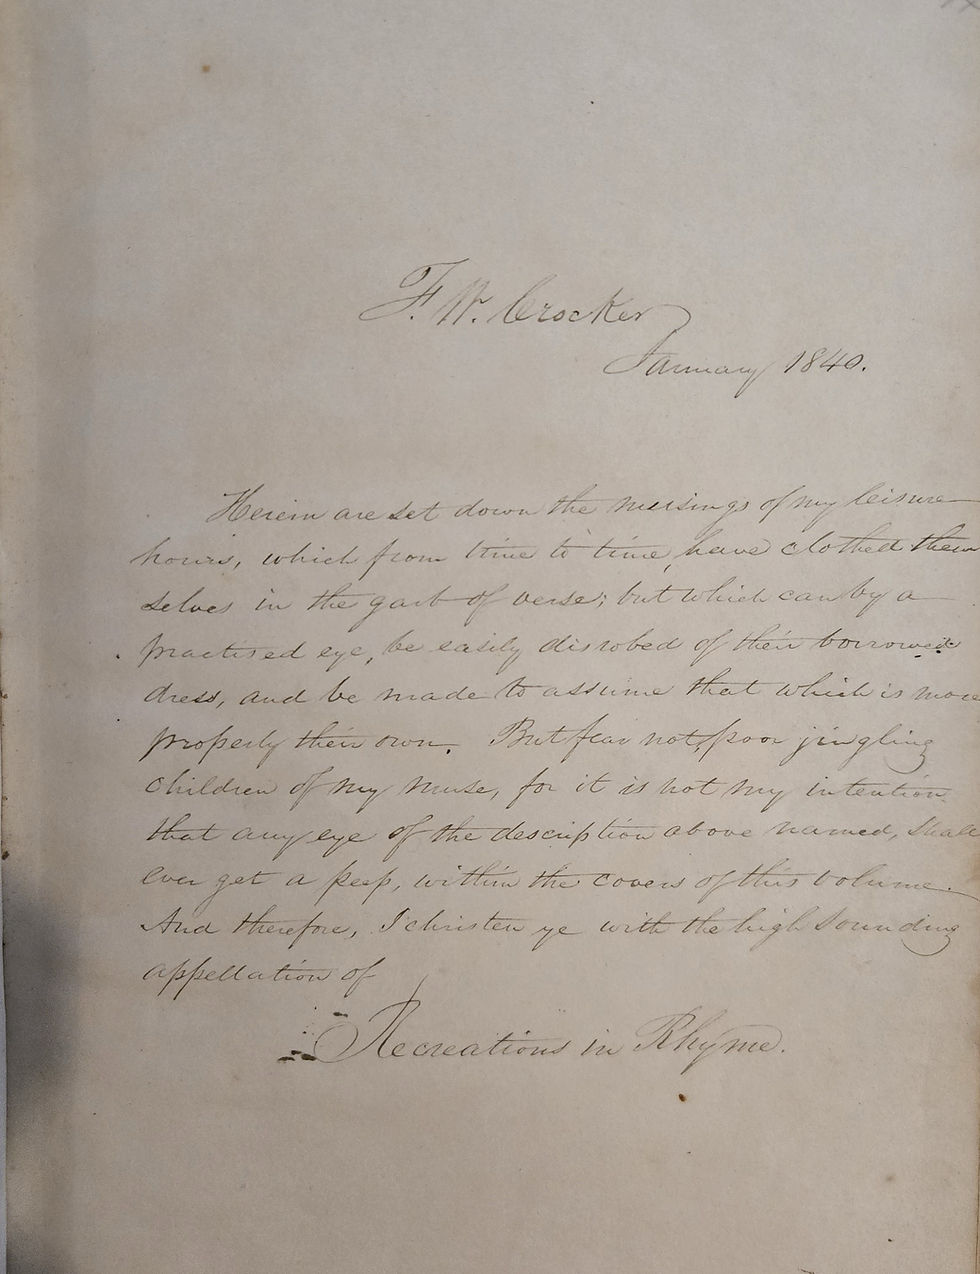 F. W. Crocker
January 1840.
Herein are set down the musings of my leisure
hours, which from time to time, have clothed them
selves in the garb of verse; but which can by a
practised eye, be easily disrobed of their borrowed
dress, and be made to assume that which is more
properly their own. But fear not, poor jingling
children of my muse, for it is not my intention
that any eye of the description above named, shall
ever get a peep, within the covers of this volume.
And therefore, I christen ye with the high sounding
appellation of
Recreations in Rhyme.